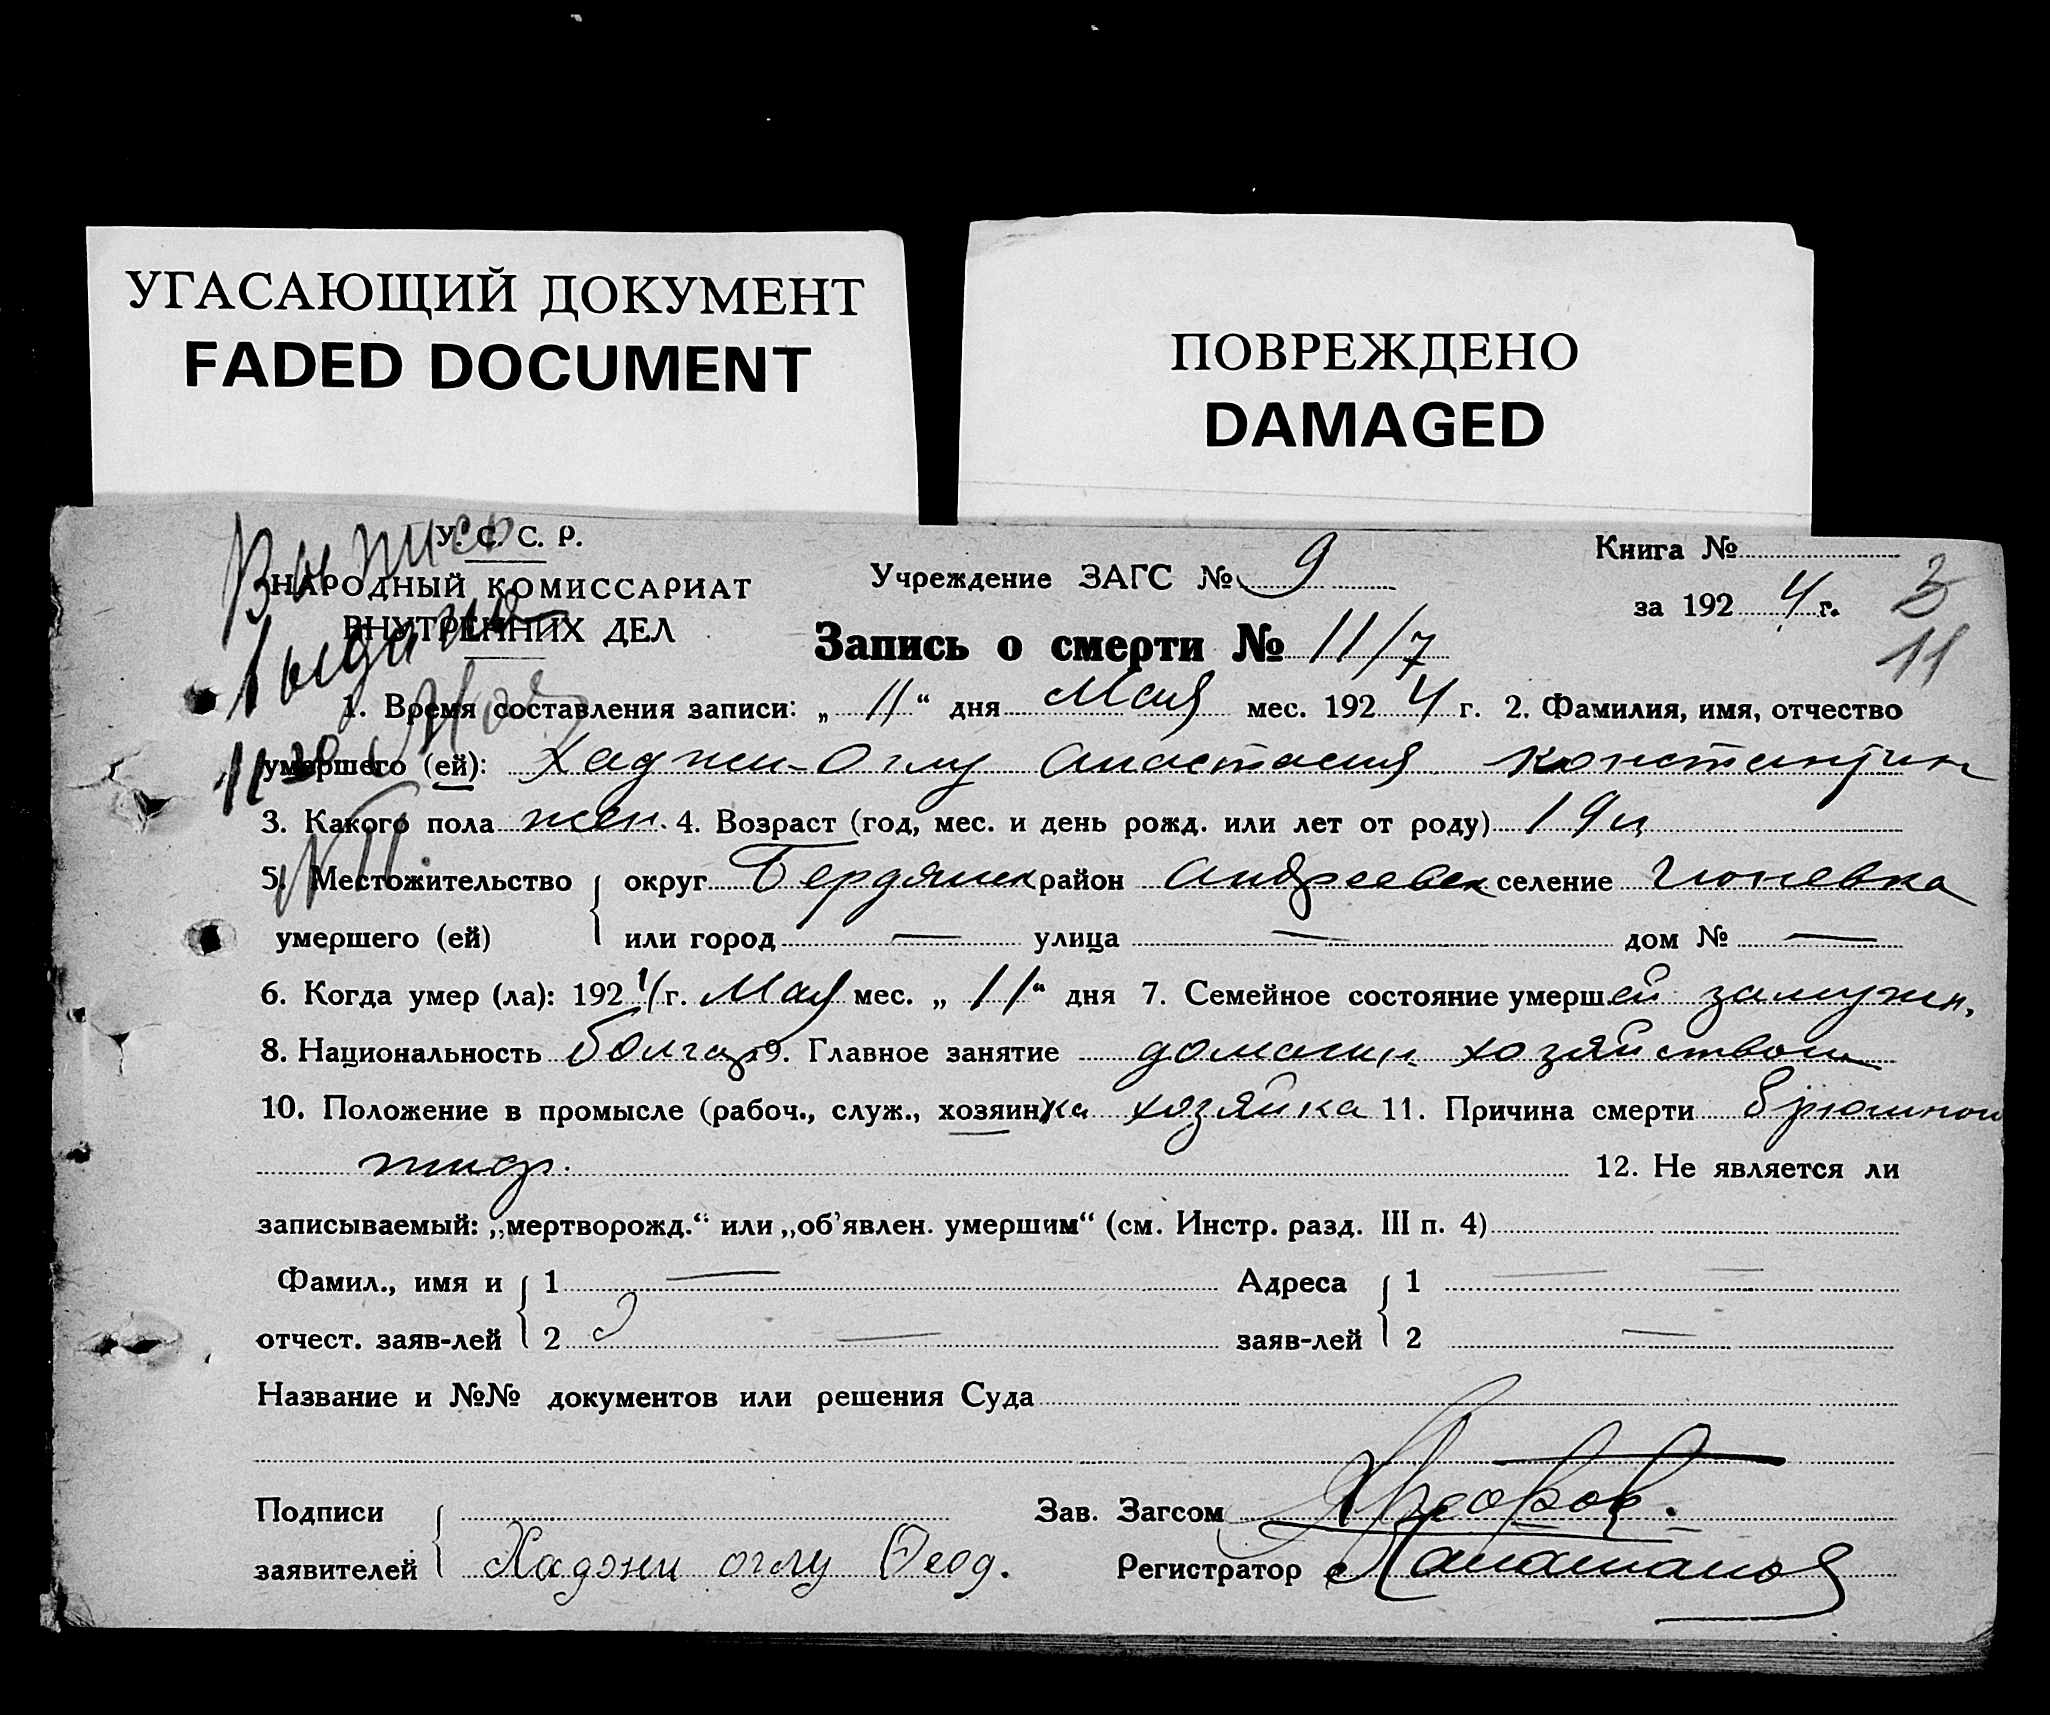 УГАСАЮЩИЙ ДОКУМЕНТ
FADED DOCUMENT
ПОВРЕЖДЕНО
DAMAGED
У. С. С. Р.
НАРОДНЫЙ КОМИССАРИАТ
ВНУТРЕННИХ ДЕЛ
Выпись
выдана
Учреждение ЗАГС № 9
Книга №
за 1924 г.
3
11
Запись о смерти № 11/7
1. Время составления записи: „11“ дня Мая мес. 1924 г. 2. Фамилия, имя, отчество
умершего (ей): Хаджи-Оглу Анастасия Константин
3. Какого пола жен. 4. Возраст (год, мес. и день рожд. или лет от роду) 19 л
№ 11.
5. Местожительство округ Бердянск район Андреевск селение Гюневка
умершего (ей) или город — улица — дом № —
6. Когда умер (ла): 1924 г. Мая мес. „11“ дня 7. Семейное состояние умершей замужн.
8. Национальность болгар 9. Главное занятие домашн хозяйством
10. Положение в промысле (рабоч., служ., хозяин) ка хозяйка 11. Причина смерти брюшной
тиф. 12. Не является ли
записываемый: „мертворожд.“ или „об’явлен. умершим“ (см. Инстр. разд. III п. 4)
Фамил., имя и 1 — Адреса 1 —
отчест. заяв-лей 2 — заяв-лей 2 —
Название и №№ документов или решения Суда
Подписи Зав. Загсом
заявителей Хаджи оглу Феод. Регистратор